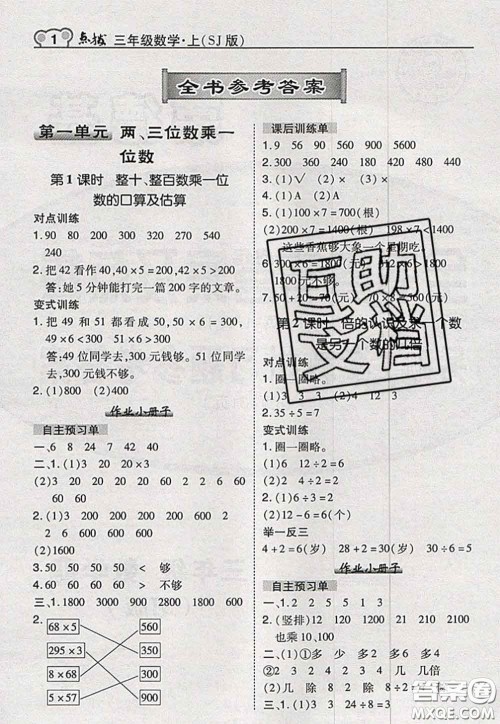 1 点拨 三年级数学·上(SJ版)
全书参考答案
第一单元 两、三位数乘一
位数
第1课时 整十、整百数乘一位
数的口算及估算
对点训练
1.90 80 200 320 270 540
240
2.把42看作40,40×5=200(字)
答:她5分钟能打完一篇200字的文章。
变式训练
1.把49和51都看成50,50×6=300,
49×6<300 51×6>300
答:49位同学去,300元钱够。51位同学
去,300元钱不够。
2.(1)800 (2)400
作业小册子
自主预习单
一、6 8 24 7 42 40
二、1.(1)3 20 20 20×3
(2)6 6 6 60 60
2.(1)300 200 600 200 600
600 600
(2)1600
3.1500 1500 1500 1500
4.50 50 350 < 够
70 70 560 > 不够
三、1.1800 3000 900 1800
2.
68×5 560
295×3 350
8×68 900
5×57 300
课后训练单
1.9 56 90 560 900 5600
2.280 360 240 180 400
3.(1)√ (2)×
4.(1)100 600 300
5.(1)100×7=700(根)
(2)200×7=1400(根) 198×7<1400
这些香蕉够大象一个星期吃。
6.300×6=1800
1800元不够。
7.50+20=70(元)
第2课时 倍的认识及求一个数
是另一个数的几倍
对点训练
1.圈一圈略。
(1)3 3 3
2.35÷5=7
变式训练
1.圈一圈略。
(1)6 12÷2=6
(2)2 12÷6=2
2.(1)12÷6=2
(2)12-6=6(个)
举一反三
4+2=6(岁) 28+2=30(岁) 30÷6=5
作业小册子
自主预习单
一、1.2 2 5 5 1 3
2.(竖排)12 120 1200 21 210 2100
也乘10、100
二、1.(1)①多 少 多 2 多
②2 3 2 4 2 4 几 几倍
(2)几 除 8 ÷ 2
2.(1)3 9÷3=3